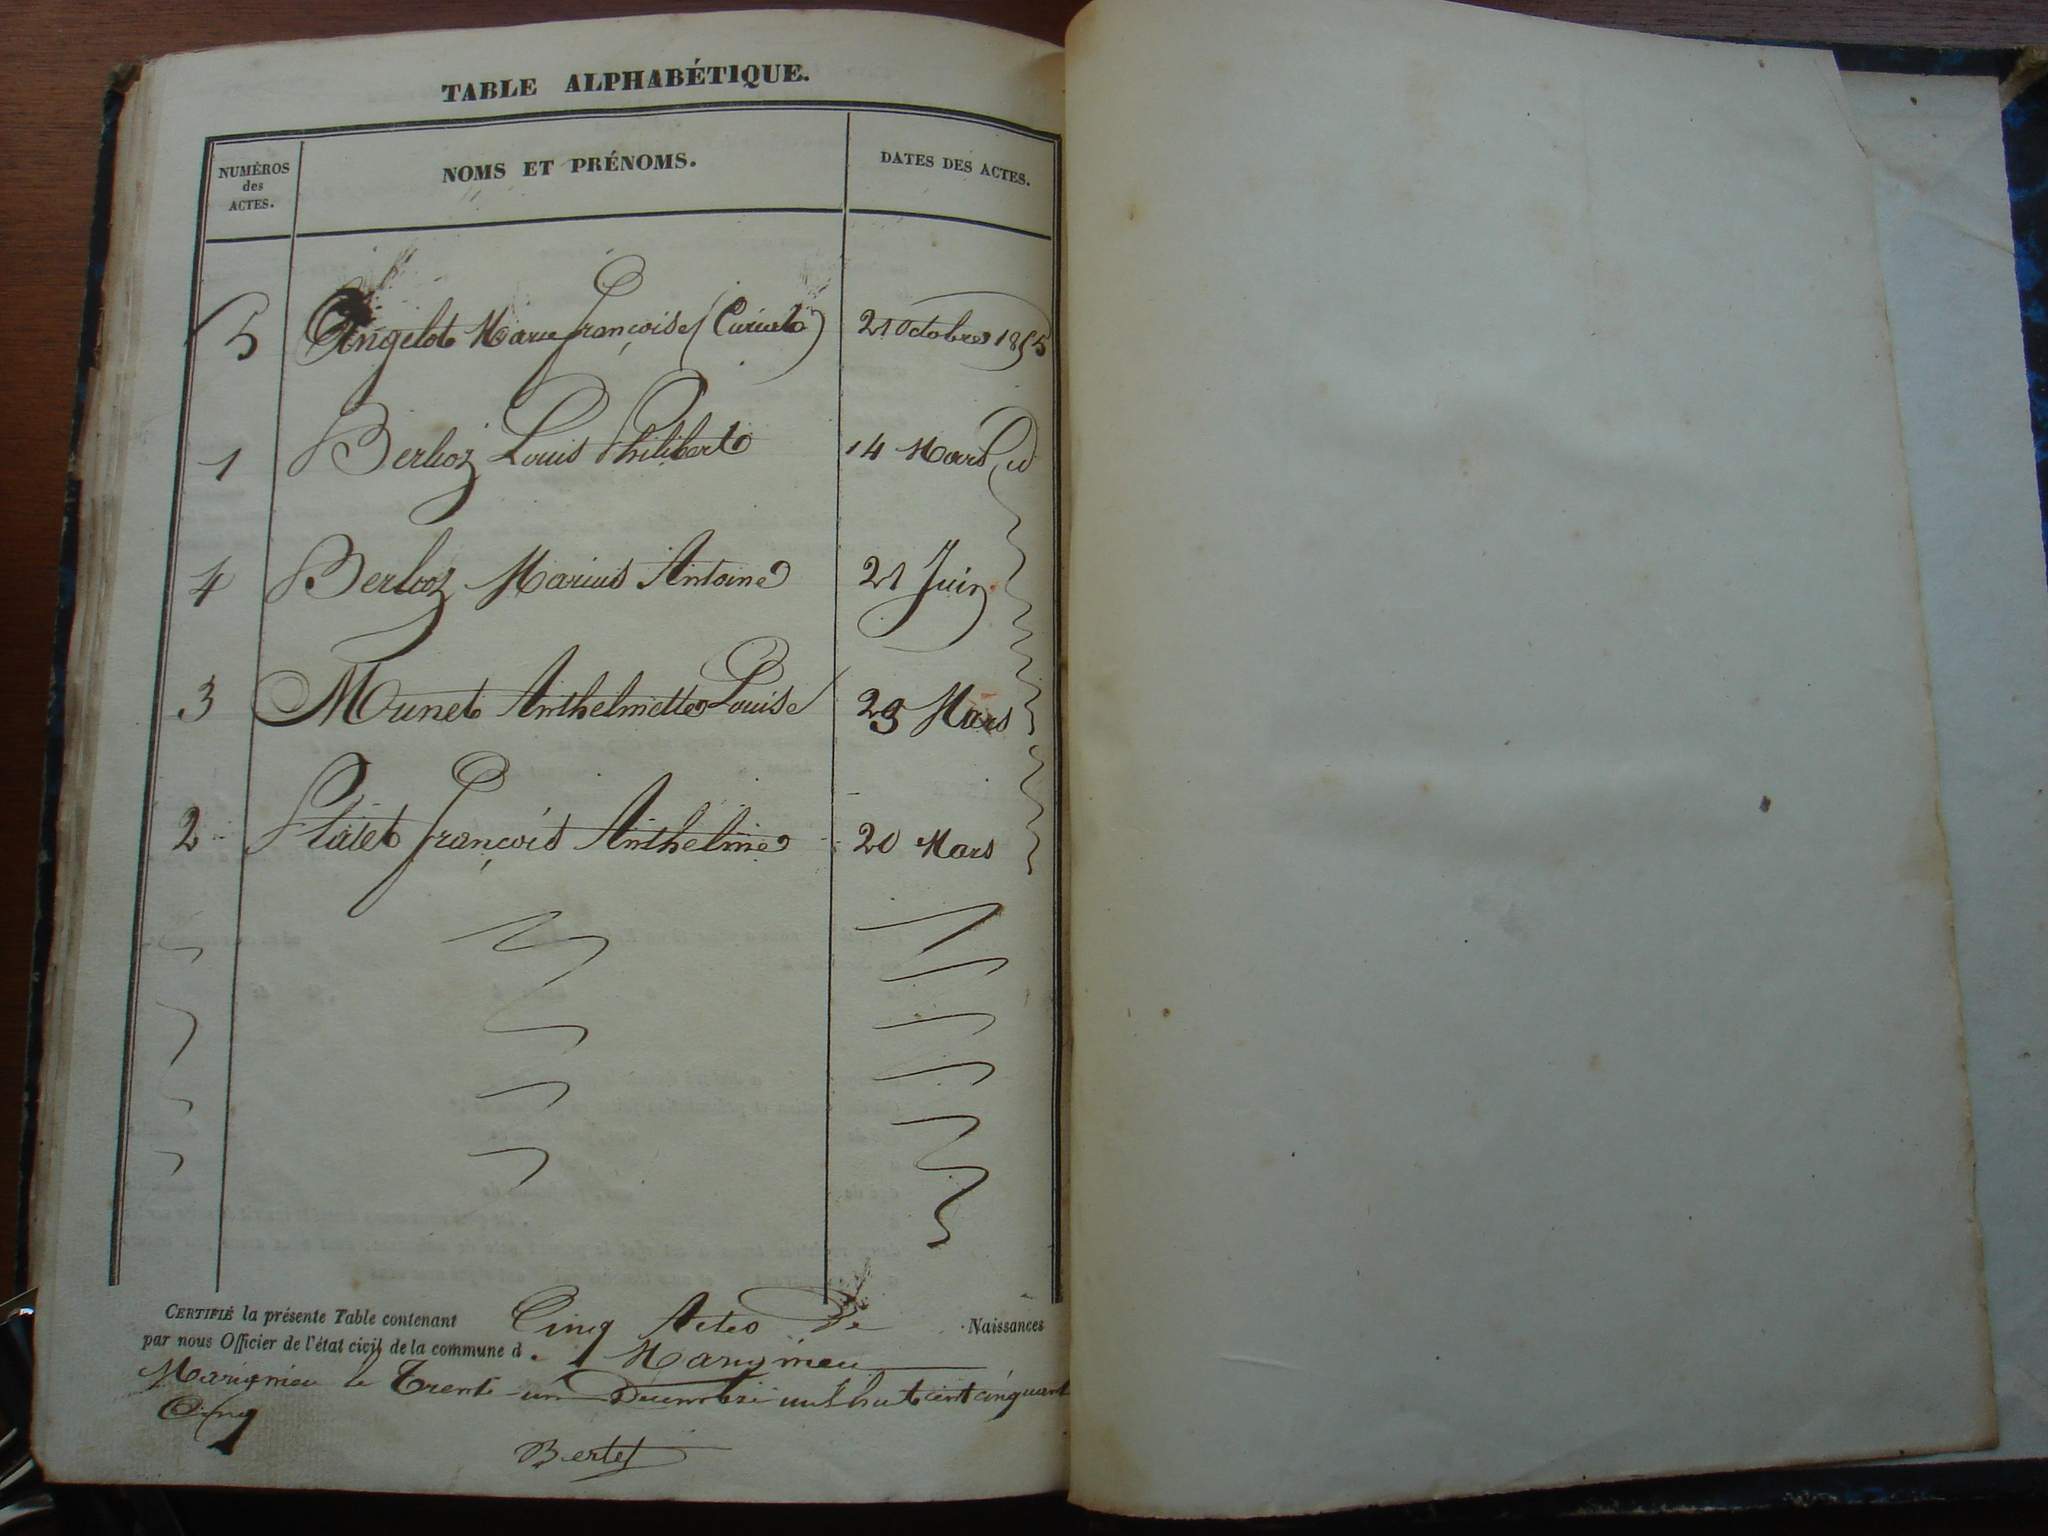 TABLE ALPHABÉTIQUE.
NUMÉROS des ACTES. NOMS ET PRÉNOMS. DATES DES ACTES.
5 Angelot Marie françoise 21 Octobre 1855
1 Berlioz Louis Philibert 14 Mars id
4 Berlioz Marius Antoine 21 Juin
3 Munet Anthelmette Louise 29 Mars
2 Platet françois Anthelme 20 Mars
CERTIFIÉ la présente Table contenant Cinq Actes De Naissances
par nous Officier de l'état civil de la commune d. Marigmieu
Marigmieu le Trente un Decembre mil huit cent cinquant
Cinq
Bertet